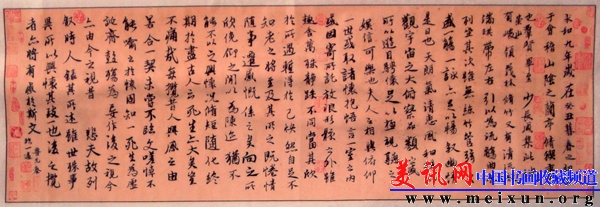 永和九年歲在癸丑暮春之初
于會稽山陰之蘭亭脩禊
也羣賢畢至少長咸集此
有崇領茂林脩竹又有清流
湍暎帶左右引以為流觴
列坐其次雖無絲竹管弦
盛一觴一詠亦足以暢敘幽
是日也天朗氣清惠風和
觀宇宙之大俯察品類之盛
所以遊目騁懷足以極視聽之
娛信可樂也夫人之相與俯仰
一世或取諸懷抱悟言一室之內
或因寄所託放浪形骸之外雖
趣舍萬殊靜躁不同當其欣
於所遇暫得於己怏然自足不
知老之將至及其所之既惓情
隨事遷感慨係之矣向之所
欣俛仰之間以為陳迹猶不
能不以之興懷況脩短隨化終
期於盡古人云死生亦大矣豈
不痛哉每攬昔人興感之由
若合一契未嘗不臨文嗟悼不
能喻之於懷固知一死生為虛
誕齊彭殤為妄作後之視今
亦由今之視昔 悲夫故列
敘時人錄其所述雖世殊事
異所以興懷其致一也後之攬
者亦將有感於斯文
美讯网
中国书画收藏频道
www.meixun.net